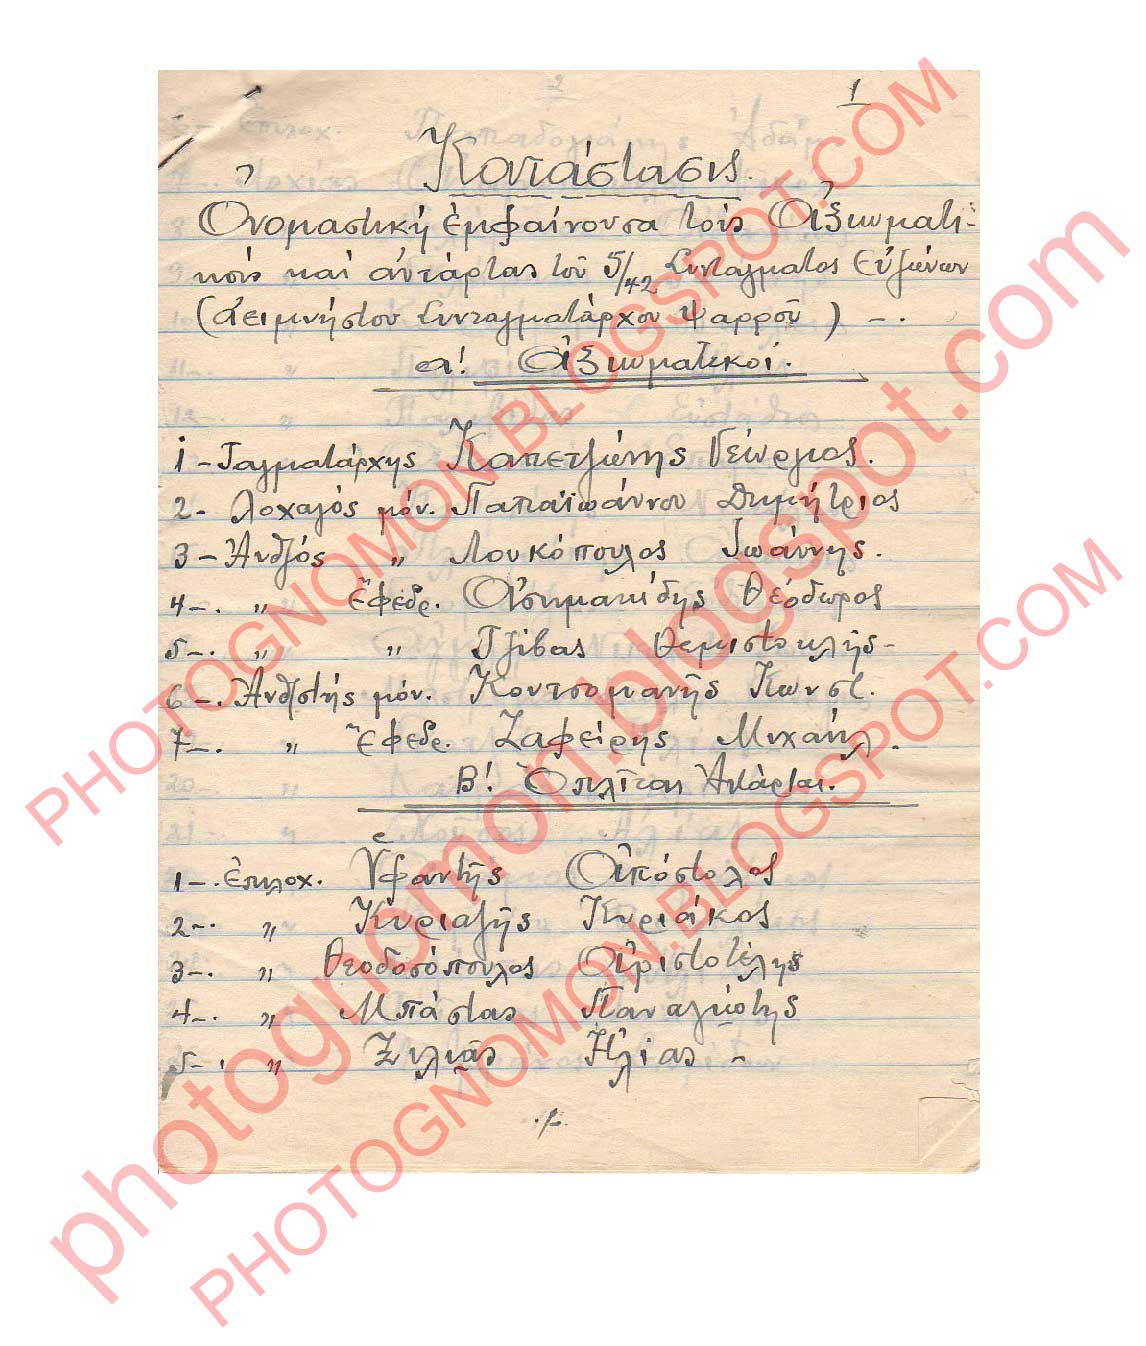 1
Κατάστασις.
Ὀνομαστική ἐμφαίνουσα τούς Ἀξιωματι-
κούς καί ἀντάρτας τοῦ 5/42 Συντάγματος Εὐζώνων
(ἀειμνήστου Συνταγματάρχου Ψαρροῦ) -.
α! Ἀξιωματικοί.
1 - Ταγματάρχης Καπετζώνης Γεώργιος.
2 - Λοχαγός μόν. Παπαϊωάννου Δημήτριος
3 - Ἀνθ/γός " Λουκόπουλος Ἰωάννης.
4 -. " Ἔφεδρ. Ἀσημακίδης Θεόδωρος
5 -. " " Τζίβας Θεμιστοκλῆς -
6 -. Ἀνθ/στής μόν. Κουτσομανῆς Κωνστ.
7 -. " Ἔφεδρ. Ζαφείρης Μιχαήλ.
Β! Ὁπλῖται Ἀντάρται.
1 -. Ἐπιλοχ. Ὑφαντῆς Ἀπόστολος
2 -. " Κυριαζῆς Κυριάκος
3 -. " Θεοδοσόπουλος Ἀριστοτέλης
4 -. " Μπάστας Παναγιώτης
5 -. " Ξυλιᾶς Ἠλίας -
./.
PHOTOGNOMON.BLOGSPOT.COM
photognomon.blogspot.com
PHOTOGNOMON.BLOGSPOT.COM